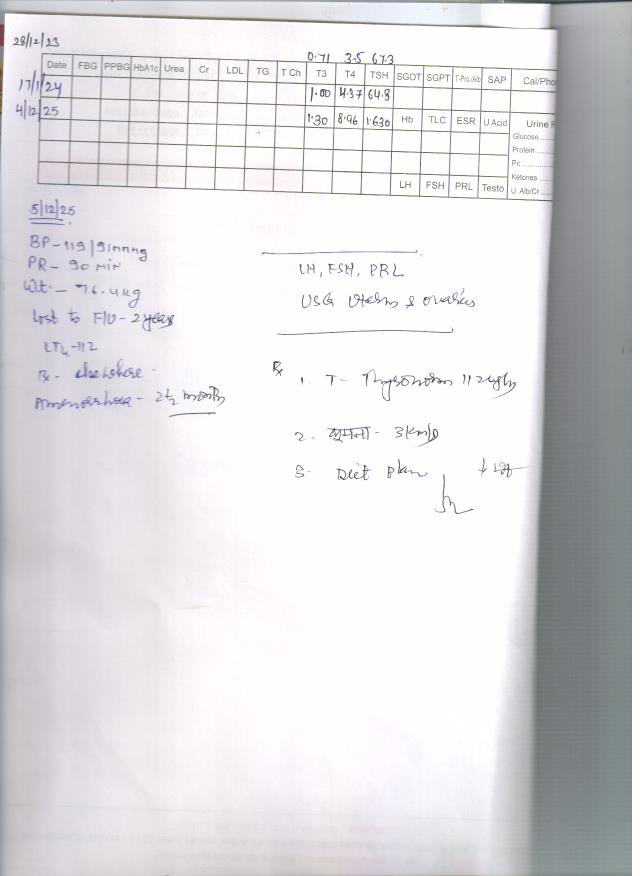 28/12/23
0.71 3.5 67.3
Date FBG PPBG HbA1c Urea Cr LDL TG T Ch T3 T4 TSH SGOT SGPT T-Pro./Alb SAP Cal/Pho
17/1/24 1.00 4.37 64.8
4/12/25 1.30 8.96 1.630 Hb TLC ESR U.Acid Urine R
Glucose
Protein
Pc
Ketones
LH FSH PRL Testo U. Alb/Cr
5/12/25
BP - 119/91mmHg
PR - 90 min
Wt. - 76.4kg
Lost to F/U - 2 years
LT4 - 112
Rx - elsewhere.
Amenorrhoea - 2½ months
LH, FSH, PRL
USG Uterus & ovaries
Rx
1. T- Thyronorm 112
2. घूमना - 3 km/D
3. Diet plan